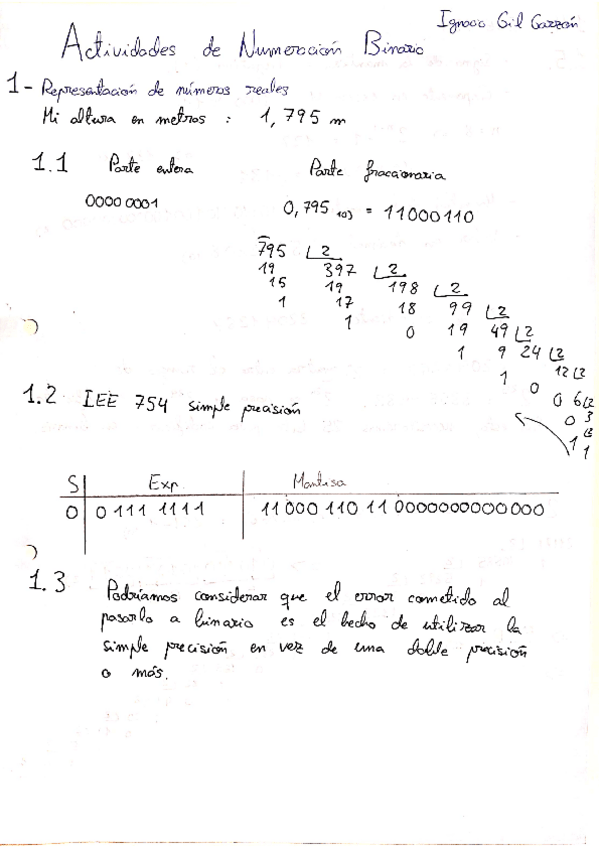 Ignacio Gil Garzón
Actividades de Numeración Binario
1- Representación de números reales
Mi altura en metros : 1,795 m
1.1 Parte entera Parte fraccionaria
0000 0001 0,795 10) = 11000110
795 2
19 397 2
15 19 198 2
1 17 18 99 2
1 0 19 49 2
1 9 24 2
1 0 12 2
0 6 2
0 3
1 2
1
1.2 IEE 754 simple precisión
S Exp Mantisa
0 0 111 1111 11 000 110 11 0000000000000
1.3 Podríamos considerar que el error cometido al
pasarlo a binario es el hecho de utilizar la
simple precisión en vez de una doble precisión
o más.